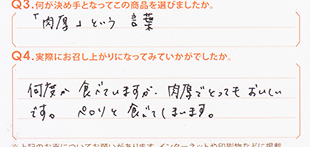 Q3.何が決め手となってこの商品を選びましたか。
「肉厚」という言葉
Q4.実際にお召し上がりになってみていかがでしたか。
何度か食べていますが、肉厚でとってもおいしい
です。ペロリと食べてしまいます。
※上記のお声についてお願いがあります。インターネットや印刷物などに掲載